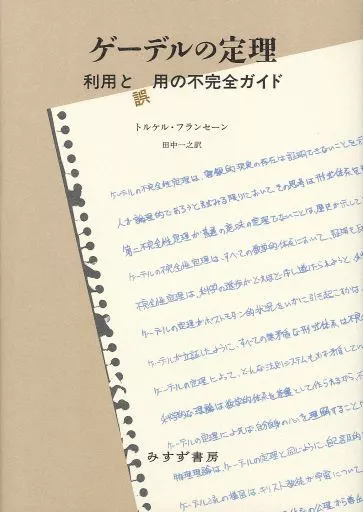 ゲーデルの定理
利用と誤用の不完全ガイド
トルケル・フランセーン
田中一之訳
ゲーデルの不完全性定理は、客観的現実の存在は証明できないことを示
人が論理的であろうとする限りにおいて、その思考は形式体系
第二不完全性定理が普通の意味の定理でないことは、歴史が示して
ゲーデルの不完全性定理は、すべての数学的体系において、証明も
不完全性定理は、科学の進歩がどれほど
ゲーデルの定理がポストモダン的状況をいかに引き起こすかは、
ゲーデルが立証したように、すべての無矛盾な形式体系は不完
ゲーデルの定理によって、どんな法則システムも必ず矛盾してい
科学的な理論は数学的体系を基礎として作られるから、不
ゲーデルの定理によれば、自分自身の心を理解すること
物理理論は、ゲーデルの定理と同じように、自己言及的
ゲーデル
みすず書房